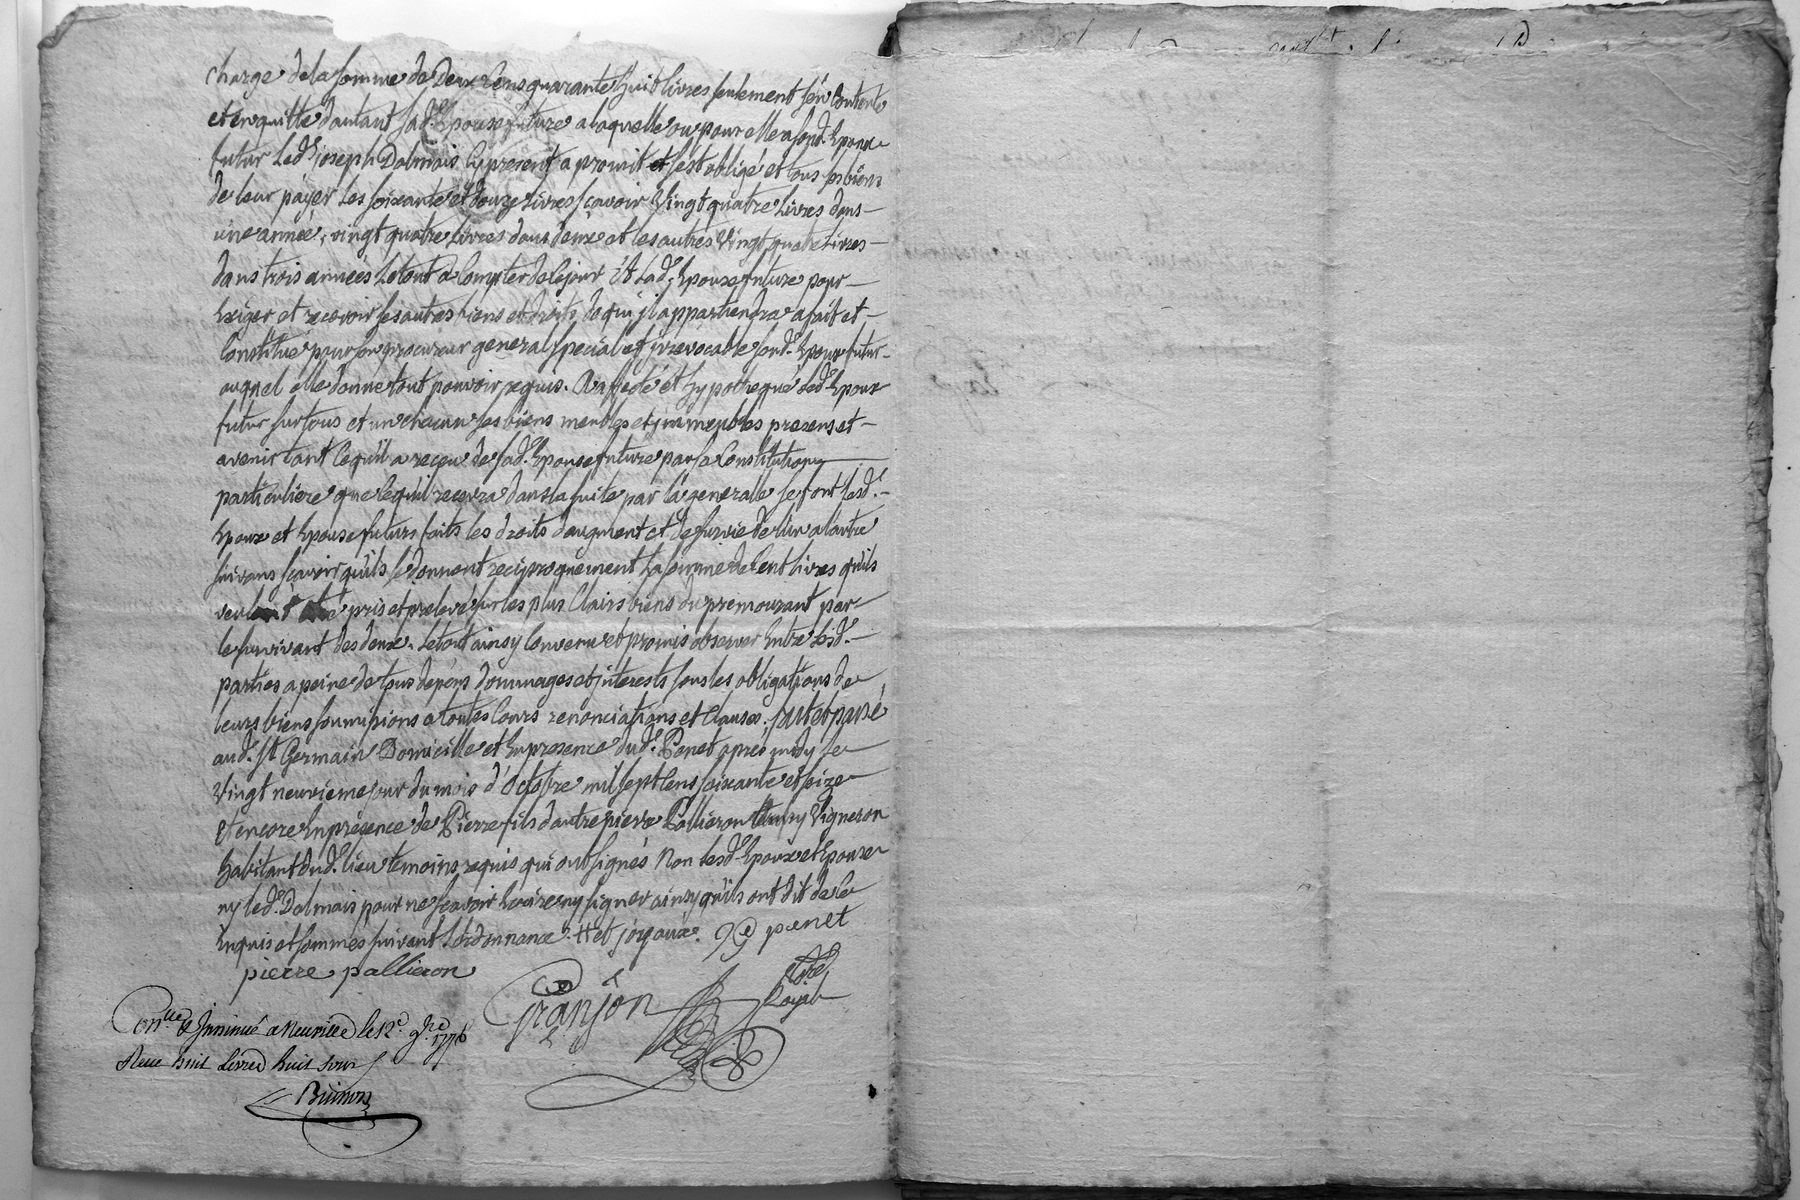 charge dela somme de Deux Cens quarante huit livres seulement s'en Contente
et en quitte dautant sad.e Epouse future a laquelle ou pour elle a sond. Epoux
futur Led.t joseph Dalmais Cy present a promit et s'est obligé et tous ses biens
de leur payer Les soixante et douze Livres sçavoir Vingt quatre Livres dans
une année, vingt quatre Livres dans deux et les autres Vingt quatre Livres
dans trois années Le tout a Compter de Ce jour Et Lad.e Epouse future pour
Exiger et recevoir ses autres biens et droits de qui jl appartiendra a fait et
Constitué pour son procureur general special et jrrevocable sond. Epoux futur
auquel elle donne tout pouvoir requis. A affecté et hypothequé Led. Epoux
futur sur tous et un chacun ses biens meubles et jmmeubles presens et
avenir tant Ce qu'il a reçeu de sad.e Epouse future par sa Constitution
particuliere que Ce qu'il recevra dans la suite par la generalle se font Lesd.
Epoux et Epouse futurs faits les droits daugment et de survie de l'un a l'autre
suivans sçavoir qu'ils se donnent reciproquement La somme de Cent livres qu'ils
veulent être pris et prelevé sur les plus Clairs biens du premourant par
le survivant des deux. Le tout ainsy Convenu et promis observer Entre Lesd.
parties a peine de tous depens dommages et jnterests sous les obligations de
leurs biens soumissions a toutes Cours renonciations et Clauses. fait et passé
aud. St Germain Domicille et En presence dud.t Penet après midy Le
Vingt neuvieme jour du mois d'Octobre mil sept Cens soixante et seize
Et encore En presence de Pierre fils d'autre pierre Pallieron Vigneron
habitant dud. lieu temoins requis qui ont signés Non Lesd. Epoux et Epouse
ny led.t Dalmais pour ne sçavoir Ecrire ny signer ainsy qu'ils ont dit de Ce
Enquis et sommés suivant L'ordonnance. # et joyaux. penet
pierre pallieron
Granjon
Con.lle & Jnsinué a Neuville le 12.e 9.bre 1776
Reçu huit Livres huit sous